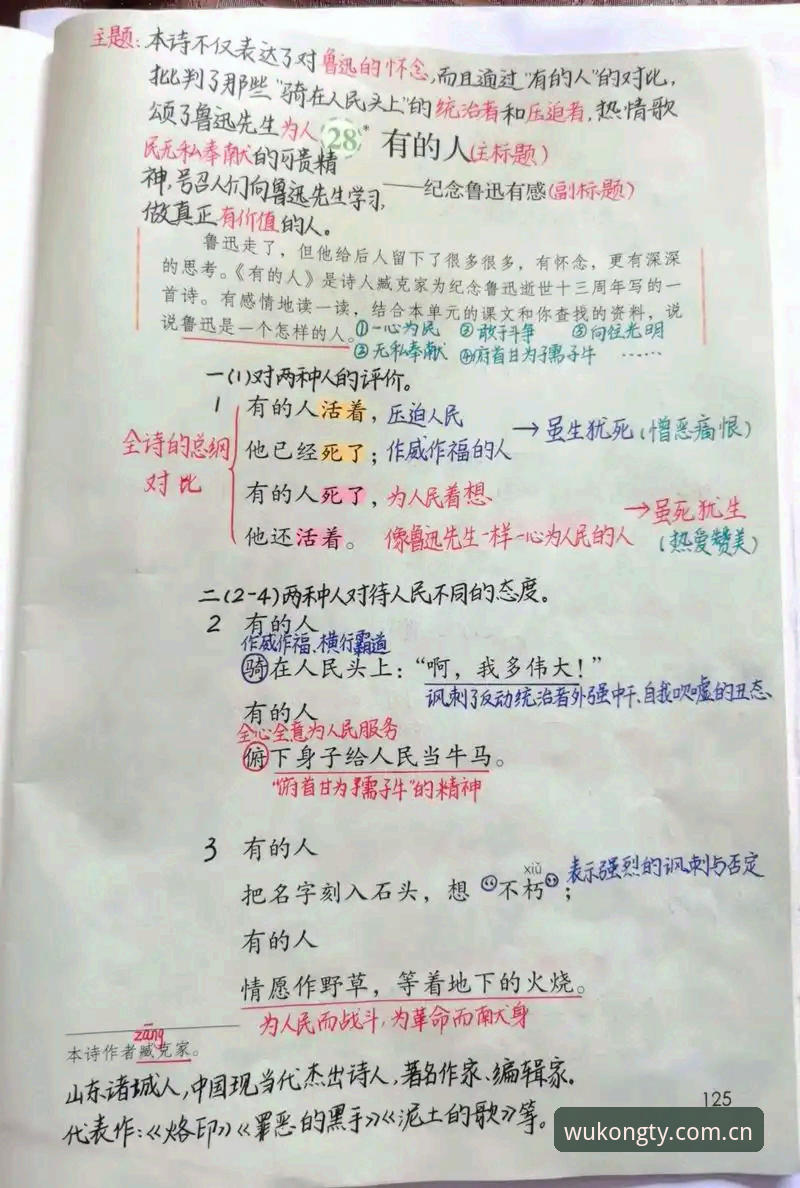 主题:本诗不仅表达了对鲁迅的怀念,而且通过"有的人"的对比,
批判了那些"骑在人民头上"的统治者和压迫者,热情歌
颂了鲁迅先生为人
民无私奉献的可贵精
神,号召人们向鲁迅先生学习,
做真正有价值的人。
28* 有的人(主标题)
——纪念鲁迅有感(副标题)
鲁迅走了,但他给后人留下了很多很多,有怀念,更有深深
的思考。《有的人》是诗人臧克家为纪念鲁迅逝世十三周年写的一
首诗。有感情地读一读,结合本单元的课文和你查找的资料,说
说鲁迅是一个怎样的人。①一心为民 ②敢于斗争 ⑤向往光明
③无私奉献 ④俯首甘为孺子牛 ……
一(1)对两种人的评价。
1 有的人活着,压迫人民
他已经死了;作威作福的人
→虽生犹死(憎恶痛恨)
全诗的总纲
对比
有的人死了,为人民着想
他还活着。像鲁迅先生一样一心为人民的人
→虽死犹生
(热爱赞美)
二(2-4)两种人对待人民不同的态度。
2 有的人
作威作福、横行霸道
骑在人民头上:“啊,我多伟大!”
讽刺了反动统治者外强中干、自我吹嘘的丑态
有的人
全心全意为人民服务
俯下身子给人民当牛马。
"俯首甘为孺子牛"的精神
3 有的人
xiǔ
把名字刻入石头,想“不朽”;表示强烈的讽刺与否定
有的人
情愿作野草,等着地下的火烧。
为人民而战斗,为革命而献身
zāng
本诗作者臧克家。
山东诸城人,中国现当代杰出诗人,著名作家、编辑家。
代表作:《烙印》《罪恶的黑手》《泥土的歌》等。
125
wukongty.com.cn